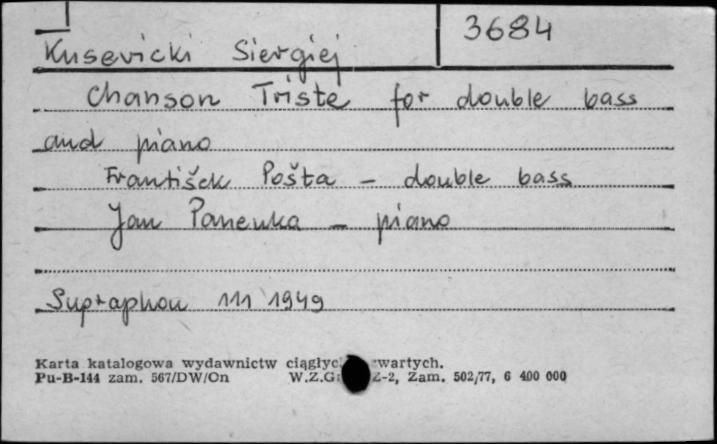 3684
Kusevicki Siergiej
Chanson Triste for double bass
and piano
František Pošta - double bass
Jan Panenka - piano
Supraphon 111 1949
Karta katalogowa wydawnictw ciągłyc wartych.
Pu-B-144 zam. 567/DW/On W.Z.G Z-2, Zam. 502/77, 6 400 000